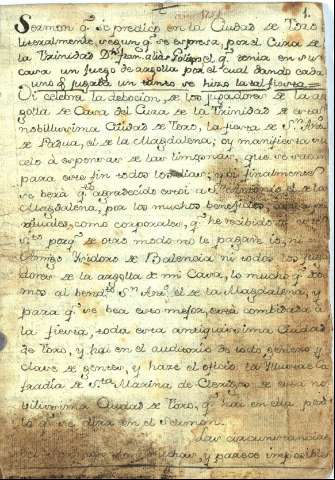 1.
Sermon q.e se predicó en la Ciudad de Toro
literalmente, segun q.e se expresa, por el Cura de
la Trinidad D.n Fran.co q.e tenia en su
casa un juego de argolla por el cual dando cada
uno q.e jugaba un tanto se hizo la tal fiesta =
Oi celebra la debocion, de los jugadores de la ar-
golla de Casa del Cura de la Trinidad de esta
nobilissima Ciudad de Toro, la fiesta de S.n Ant.o
de Padua, el de la Magdalena; oy manifiesta su
celo á expensas de las limosnas, que se
para este fin todos los dias; y oi finalmente
se berá q.e agradecido estoi á S.n Antonio el de la
Magdalena, por los muchos beneficios, asi esp-
irituales, como corporales, q.e he recibido de este
S.to porq.e de otras modo no le pagará io, ni
Domingo Isidoro de Palencia ni todos los juga-
dores de la argolla de mi Casa, lo mucho q.e
mos al bendito S.n Ant.o el de la Magdalena, y
para q.e se bea esto mejor, está combidada á
la fiesta, toda esta antiquissima Ciudad
de Toro, y hai en el auditorio de todo genero y
clase de gentes, y haze el oficio la Illustre
de S.ta Marina de Clerigos de esta no-
vilissima Ciudad de Toro, q.e hai en ella
lo q.e se dirá en el Sermon.
Las circunstancias
son muchas, y parece imposible